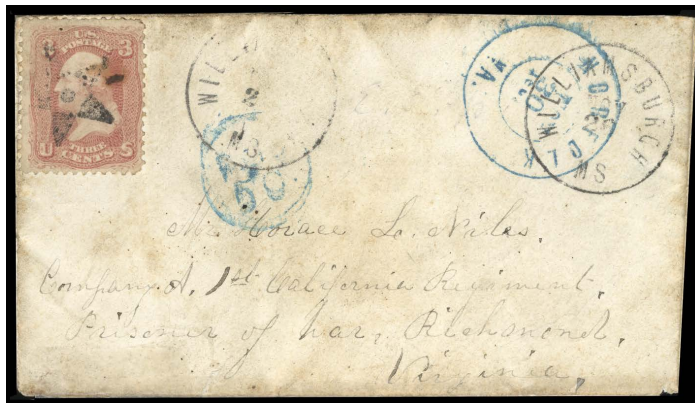 U.S. POSTAGE 3
THREE
U CENTS S
WILL
MS.
NORFOLK VA.
30
WILLIAMSBURGH MS
Mr. Horace L. Niles.
Company A, 1st California Regiment,
Prisoner of War, Richmond,
Virginia,